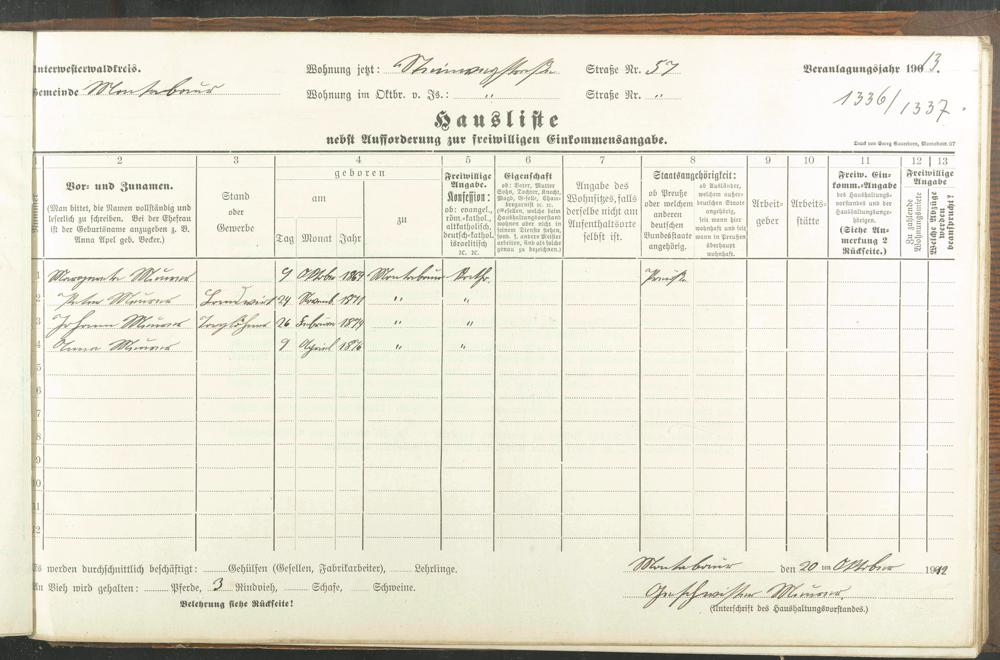 Unterwesterwaldkreis. Wohnung jetzt: Steinwegstraße Straße Nr. 57 Veranlagungsjahr 1913.
Gemeinde Montabaur Wohnung im Oktbr. v. Js.: " Straße Nr. " 1336/1337.
Hausliste
nebst Aufforderung zur freiwilligen Einkommensangabe.
1 2 3 4 5 6 7 8 9 10 11 12 13
Nummer
Vor- und Zunamen.
(Man bittet, die Namen vollständig und
leserlich zu schreiben. Bei der Ehefrau
ist der Geburtsname anzugeben z. B.
Anna Apel geb. Becker.)
Stand
oder
Gewerbe
geboren
am
zu
Tag Monat Jahr
Freiwillige
Angabe.
Konfession:
ob: evangel.,
röm.-kathol.,
altkatholisch,
deutsch-kathol.
israelitisch
ec. ec.
Eigenschaft
ob: Vater, Mutter
Sohn, Tochter, Knecht,
Magd, Geselle,
Angabe des
Wohnsitzes, falls
derselbe nicht am
Aufenthaltsorte
selbst ist.
Staatsangehörigkeit:
ob Preuße
oder welchem
anderen
deutschen
Bundesstaate
angehörig.
ob Ausländer,
welchem außer-
deutschen Staate
angehörig,
seit wann hier
wohnhaft und seit
wann in Preußen
überhaupt
wohnhaft.
Arbeit-
geber
Arbeits-
stätte
Freiw. Ein-
komm.-Angabe
des Haushaltungs-
vorstandes und der
Haushaltungsange-
hörigen.
(Siehe An-
merkung 2
Rückseite.)
Freiwillige
Angabe
Zu zahlende
Wohnungsmiete
Welche Abzüge
werden
beansprucht?
1 Margareta Meurer 9 Oktober 1869 Montabaur Kathl. Preuße
2 Peter Meurer Landwirt 24 Novemb. 1871 " "
3 Johann Meurer Taglöhner 26 Februar 1874 " "
4 Anna Meurer 9 April 1876 "
5
6
7
8
9
10
11
12
Es werden durchschnittlich beschäftigt: Gehülfen (Gesellen, Fabrikarbeiter), Lehrlinge.
An Vieh wird gehalten: Pferde, 3 Rindvieh, Schafe, Schweine.
Belehrung siehe Rückseite!
Montabaur den 20 ten Oktober 1912
Geschwister Meurer
(Unterschrift des Haushaltungsvorstandes.)